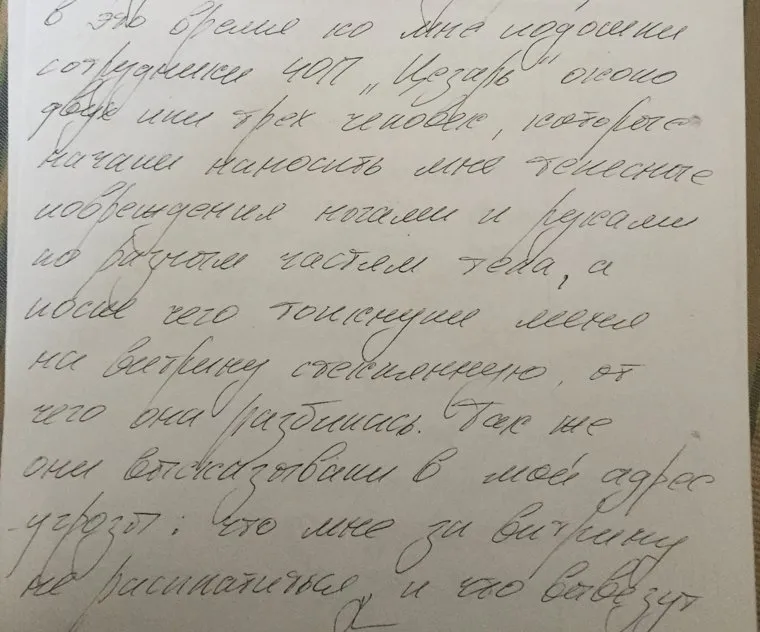 в это время ко мне подошли
сотрудники ЧОП „Цезарь" около
двух или трех человек, которые
начали наносить мне телесные
повреждения ногами и руками
по разным частям тела, а
после чего толкнули меня
на витрину стеклянную, от
чего она разбилась. Так же
они высказывали в мой адрес
угрозы: что мне за витрину
не расплатиться, и что вывезут